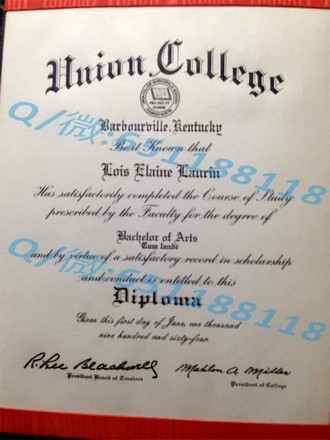 Union College
Barbourville, Kentucky
Be it Known that
Lois Elaine Laurin
Has satisfactorily completed the Course of Study
prescribed by the Faculty for the degree of
Bachelor of Arts
Cum laude
and by virtue of a satisfactory record in scholarship
and conduct is entitled to this
Diploma
Given this first day of June, one thousand
nine hundred and sixty-four.
President Board of Trustees
Mahlon A. Miller
President of College
Q/微:631188118
Q/微:631188118